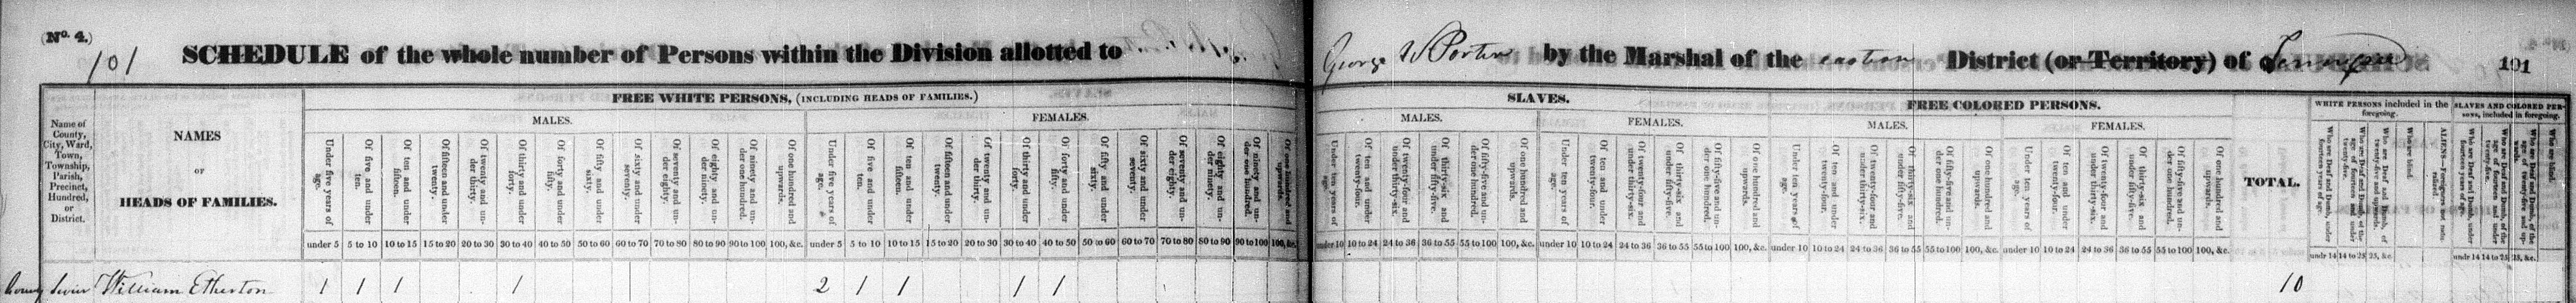 (No. 4.)
101
SCHEDULE of the whole number of Persons within the Division allotted to George W Porter by the Marshal of the eastern District (or Territory) of Tennessee
101
Name of County, City, Ward, Town, Township, Parish, Precinct, Hundred, or District.
NAMES
OF
HEADS OF FAMILIES.
FREE WHITE PERSONS, (INCLUDING HEADS OF FAMILIES.)
MALES.
Under five years of age.
Of five and under ten.
Of ten and under fifteen.
Of fifteen and under twenty.
Of twenty and under thirty.
Of thirty and under forty.
Of forty and under fifty.
Of fifty and under sixty.
Of sixty and under seventy.
Of seventy and under eighty.
Of eighty and under ninety.
Of ninety and under one hundred.
Of one hundred and upwards.
under 5 5 to 10 10 to 15 15 to 20 20 to 30 30 to 40 40 to 50 50 to 60 60 to 70 70 to 80 80 to 90 90 to 100 100, &c.
FEMALES.
Under five years of age.
Of five and under ten.
Of ten and under fifteen.
Of fifteen and under twenty.
Of twenty and under thirty.
Of thirty and under forty.
Of forty and under fifty.
Of fifty and under sixty.
Of sixty and under seventy.
Of seventy and under eighty.
Of eighty and under ninety.
Of ninety and under one hundred.
Of one hundred and upwards.
under 5 5 to 10 10 to 15 15 to 20 20 to 30 30 to 40 40 to 50 50 to 60 60 to 70 70 to 80 80 to 90 90 to 100 100, &c.
SLAVES.
MALES.
Under ten years of age.
Of ten and under twenty-four.
Of twenty-four and under thirty-six.
Of thirty-six and under fifty-five.
Of fifty-five and under one hundred.
Of one hundred and upwards.
under 10 10 to 24 24 to 36 36 to 55 55 to 100 100, &c.
FEMALES.
Under ten years of age.
Of ten and under twenty-four.
Of twenty-four and under thirty-six.
Of thirty-six and under fifty-five.
Of fifty-five and under one hundred.
Of one hundred and upwards.
under 10 10 to 24 24 to 36 36 to 55 55 to 100 100, &c.
FREE COLORED PERSONS.
MALES.
Under ten years of age.
Of ten and under twenty-four.
Of twenty-four and under thirty-six.
Of thirty-six and under fifty-five.
Of fifty-five and under one hundred.
Of one hundred and upwards.
under 10 10 to 24 24 to 36 36 to 55 55 to 100 100, &c.
FEMALES.
Under ten years of age.
Of ten and under twenty-four.
Of twenty-four and under thirty-six.
Of thirty-six and under fifty-five.
Of fifty-five and under one hundred.
Of one hundred and upwards.
under 10 10 to 24 24 to 36 36 to 55 55 to 100 100, &c.
TOTAL.
WHITE PERSONS included in the foregoing.
Who are Deaf and Dumb, under fourteen years of age.
Who are Deaf and Dumb, of the age of fourteen and under twenty-five.
Who are Deaf and Dumb, of twenty-five and upwards.
Who are blind.
ALIENS—Foreigners not naturalized.
undr 14 14 to 25 25, &c.
SLAVES AND COLORED PERSONS, included in foregoing.
Who are Deaf and Dumb, under twenty-five.
Who are Deaf and Dumb, of the age of fourteen and under twenty-five.
Who are Deaf and Dumb, of the age of twenty-five and upwards.
Who are blind.
undr 14 14 to 25 25, &c.
County Sevier William Etherton 1 1 1 1 2 1 1 1 1 10